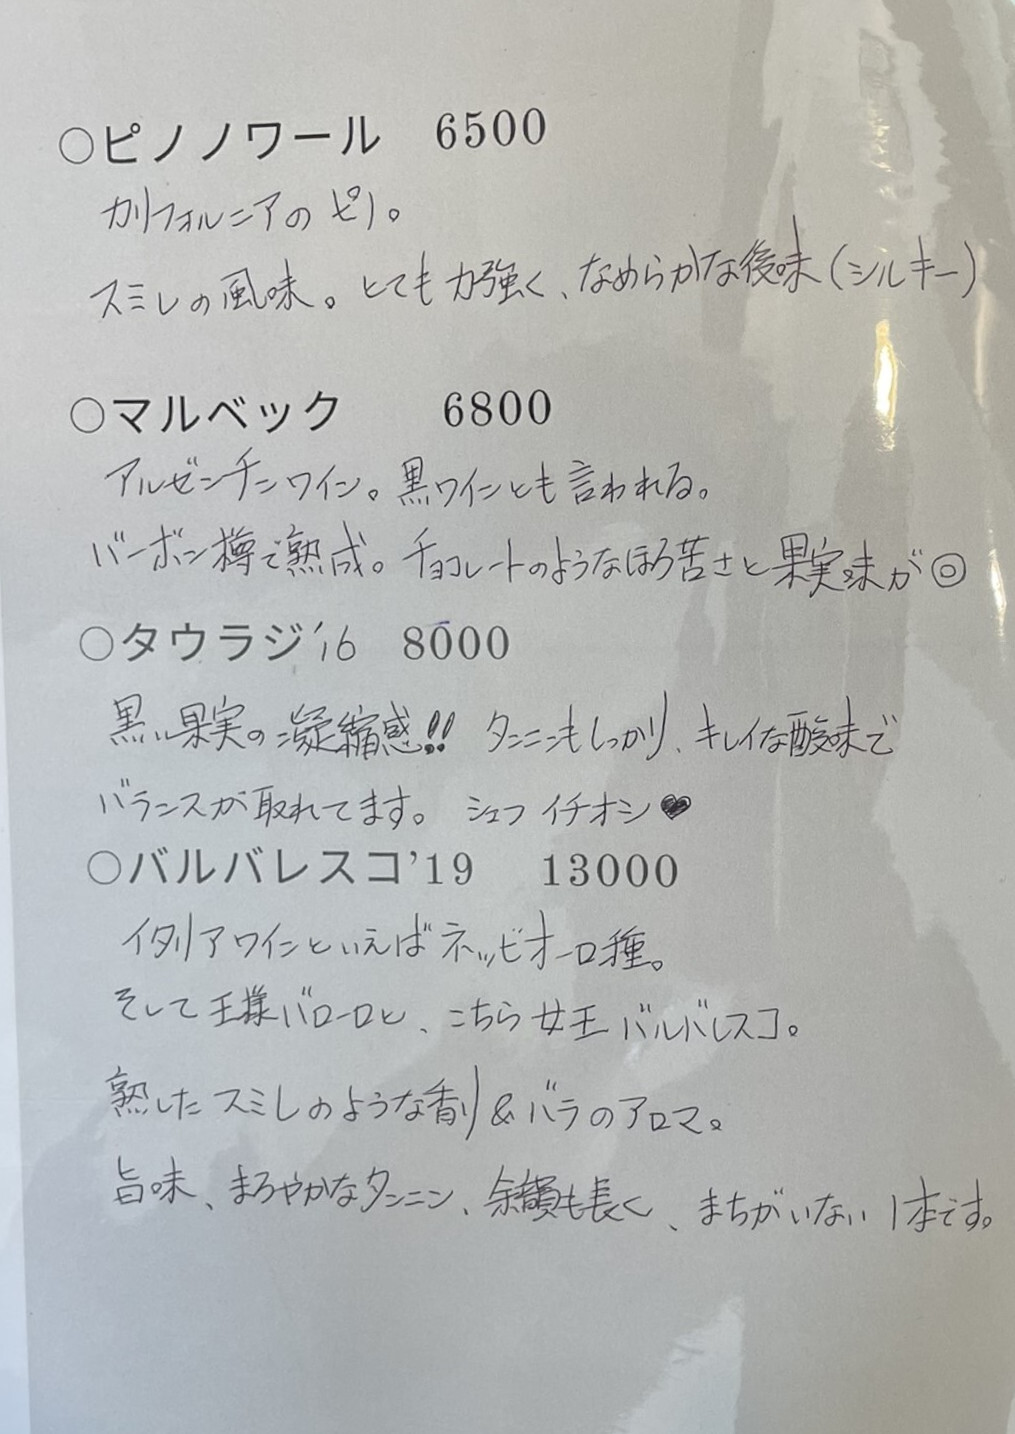 ○ピノノワール 6500
カリフォルニアのピノ。
スミレの風味。とても力強く、なめらかな後味（シルキー）
○マルベック 6800
アルゼンチンワイン。黒ワインとも言われる。
バーボン樽で熟成。チョコレートのようなほろ苦さと果実味が◎
○タウラジ'16 8000
黒い果実の凝縮感!! タンニンもしっかり、キレイな酸味で
バランスが取れてます。 シェフ イチオシ♥
○バルバレスコ'19 13000
イタリアワインといえばネッビオーロ種。
そして王様バローロと、こちら女王バルバレスコ。
熟したスミレのような香り&バラのアロマ。
旨味、まろやかなタンニン、余韻も長く、まちがいない1本です。